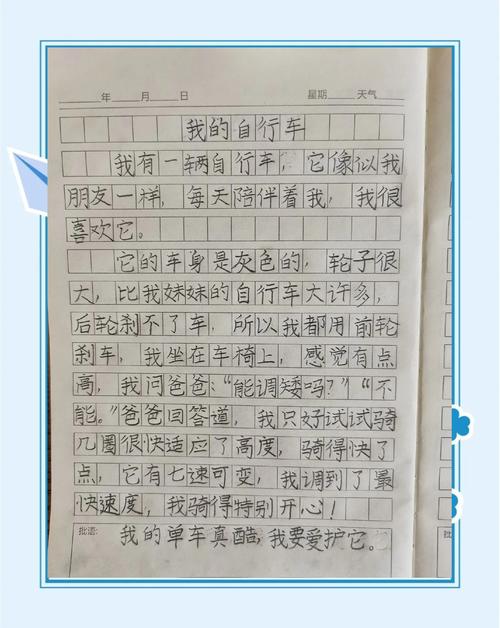 年 月 日 星期 天气
我的自行车
我有一辆自行车，它像似我
朋友一样，每天陪伴着我，我很
喜欢它。
它的车身是灰色的，轮子很
大，比我妹妹的自行车大许多，
后轮刹不了车，所以我都用前轮
刹车，我坐在车椅上，感觉有点
高，我问爸爸：“能调矮吗？”“不
能。”爸爸回答道，我只好试试骑
几圈很快适应了高度，骑得快了
点，它有七速可变，我调到了最
快速度，我骑得特别开心！
批语： 我的单车真酷，我要爱护它。
批